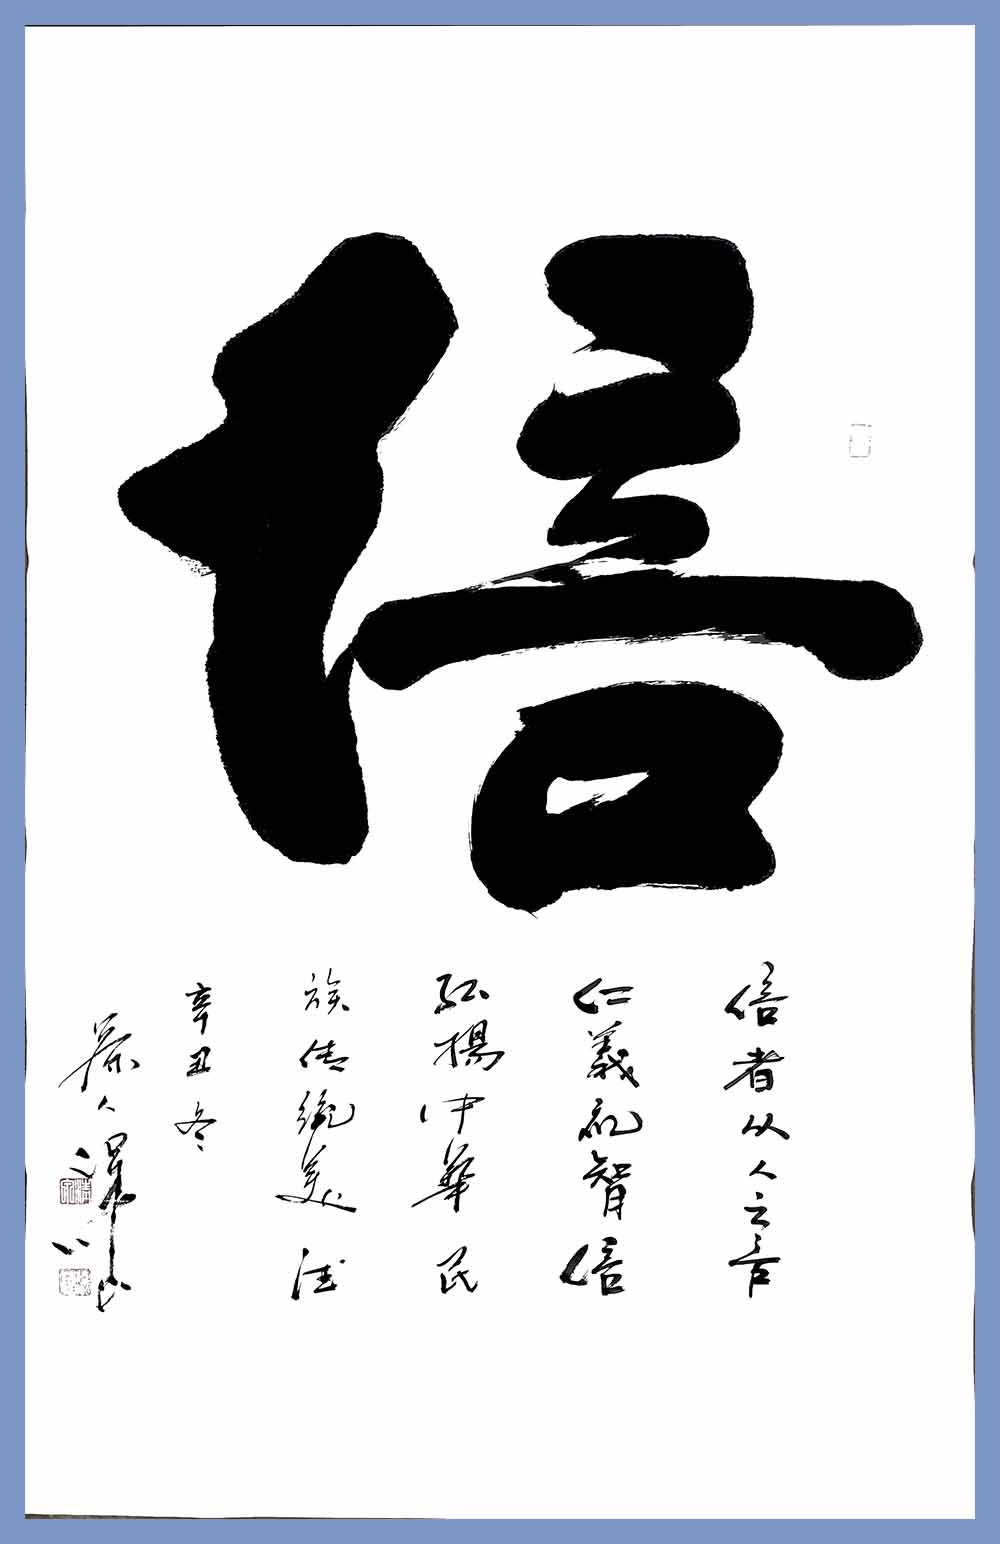 信
信者从人之言
仁義礼智信
弘揚中華民
族传統美德
辛丑冬